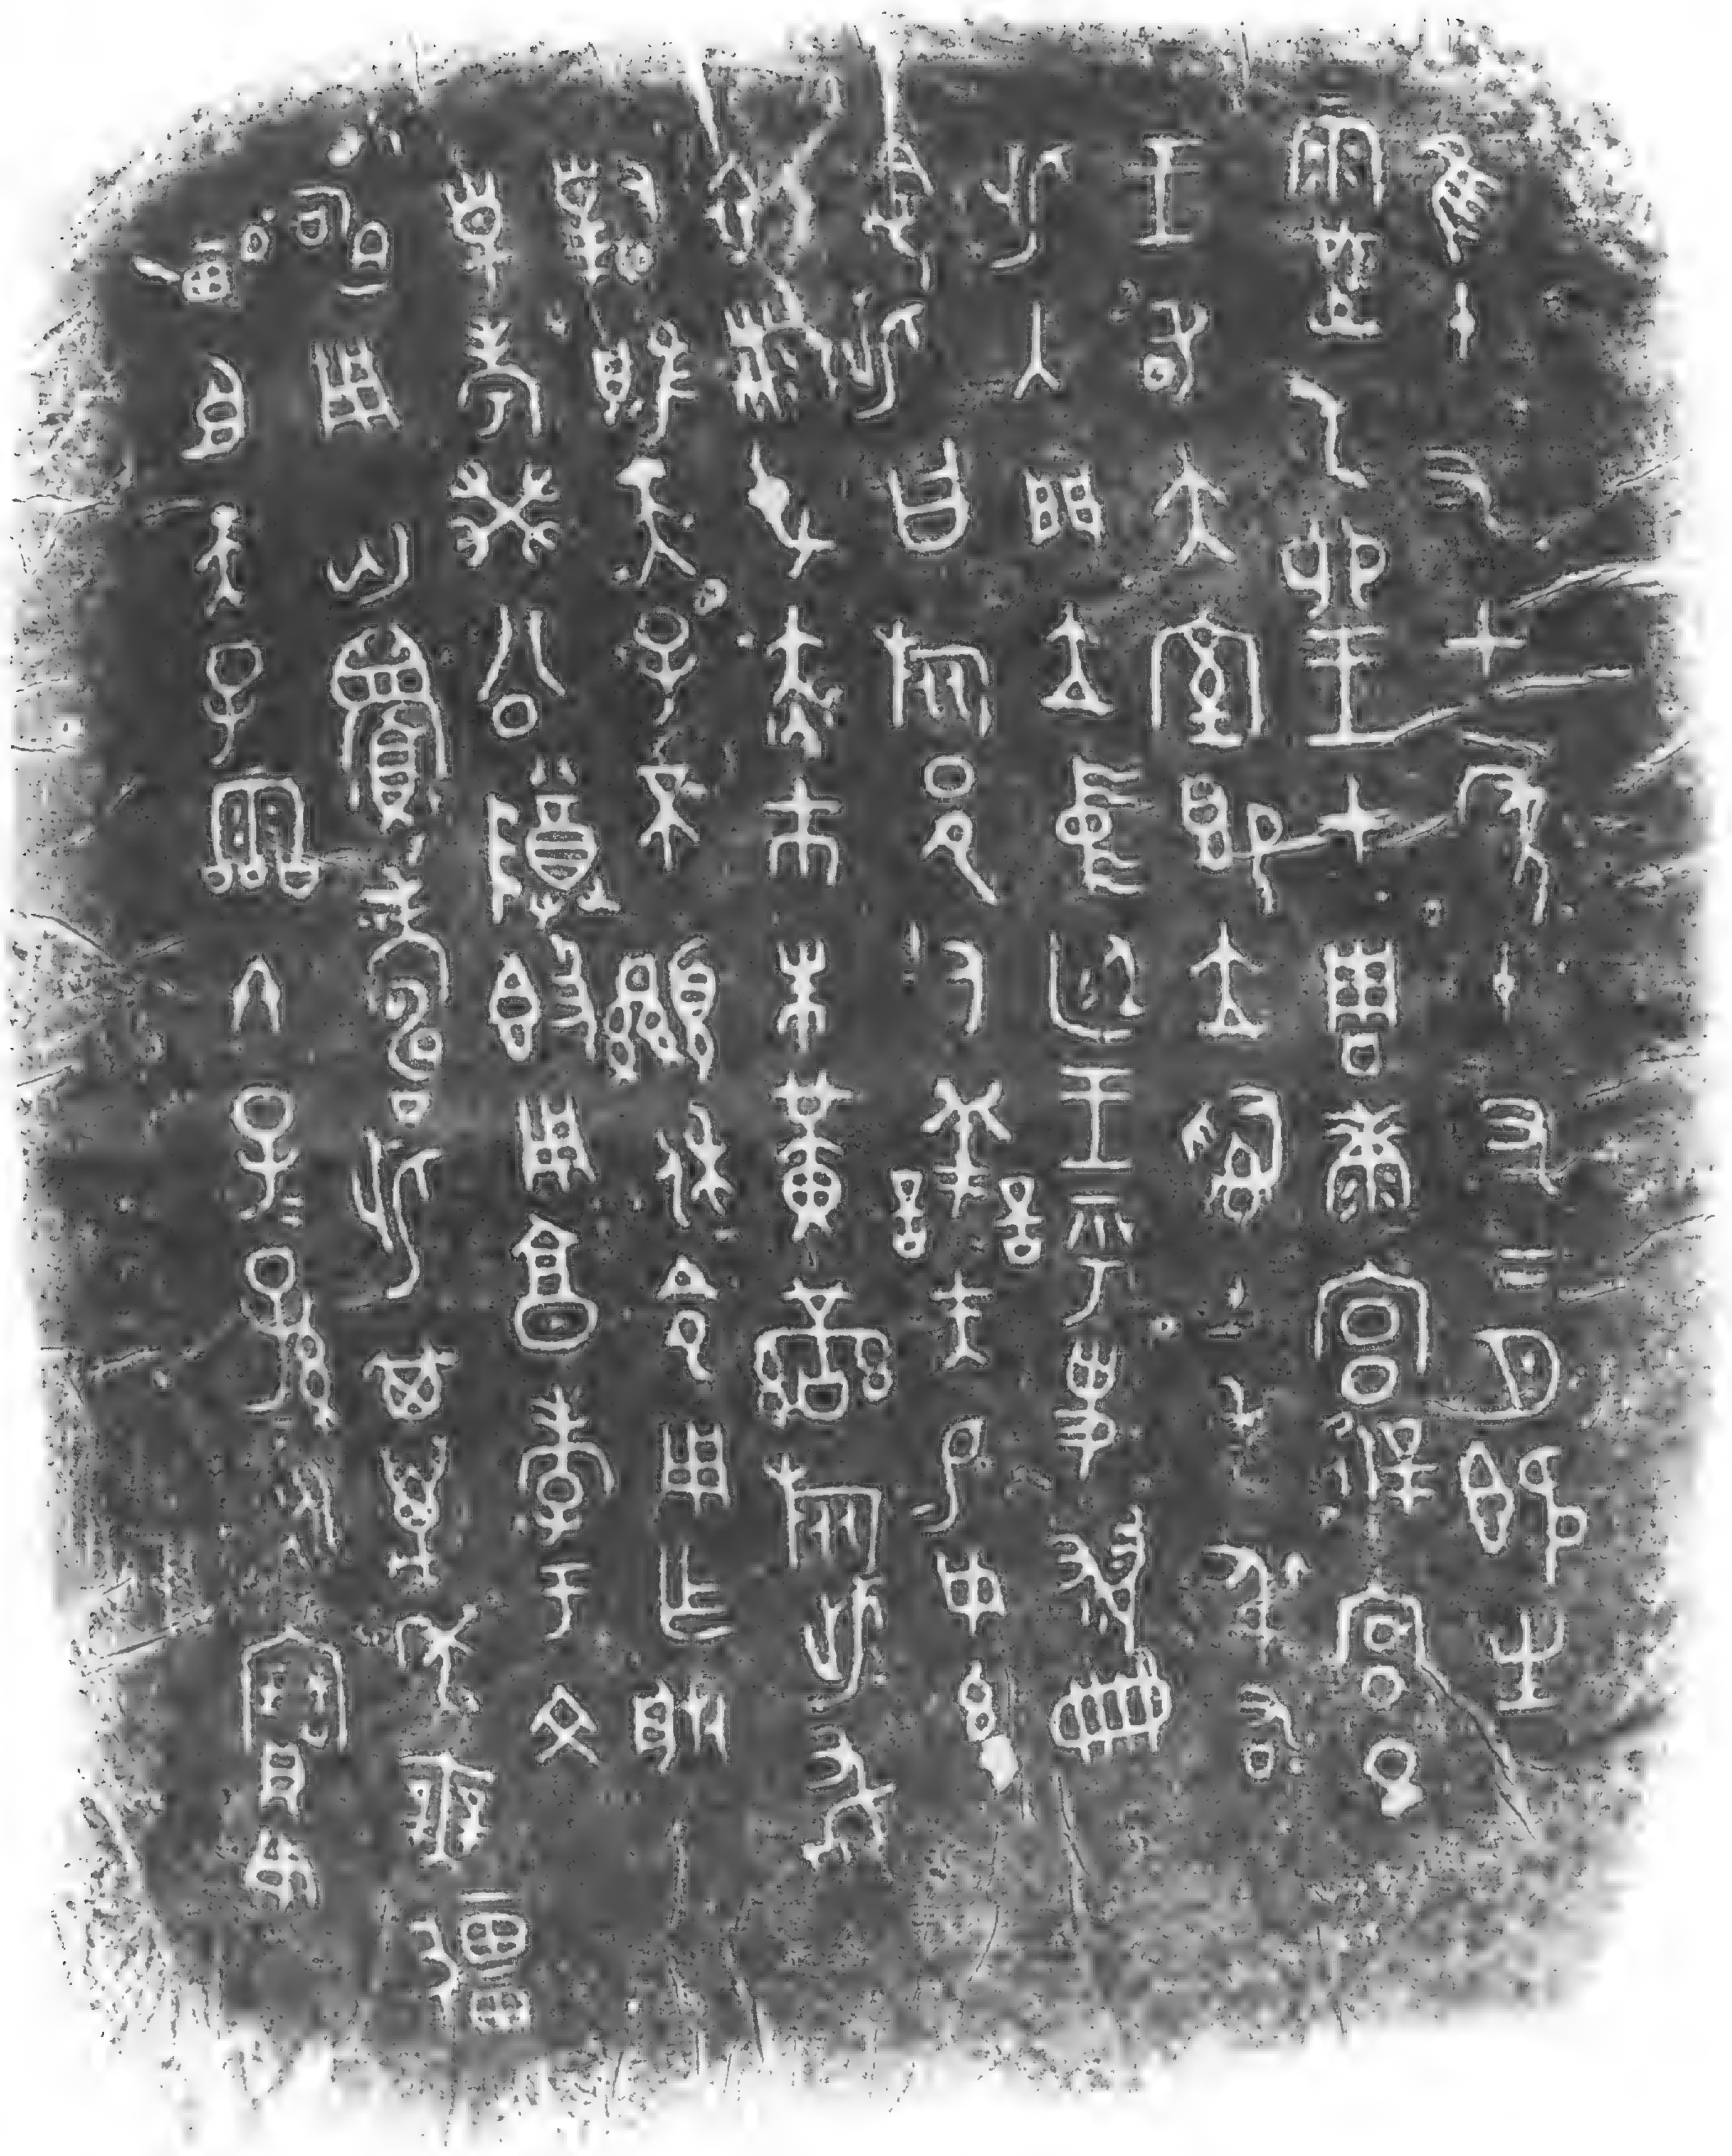 隹十又七年十又二月既生
霸乙卯王才周康宮徲宮旦
王各大室即立𤔲土毛弔右
此入門立中廷王乎史翏冊
令此曰旅邑人善夫易女玄
衣黹屯赤巿朱黃䜌旅此敢
對揚天子不顯休令用乍朕
皇考癸公尊鼎用享孝于文
申用匄眉壽此其萬年無疆
畯臣天子霝冬子子孫孫永寶用